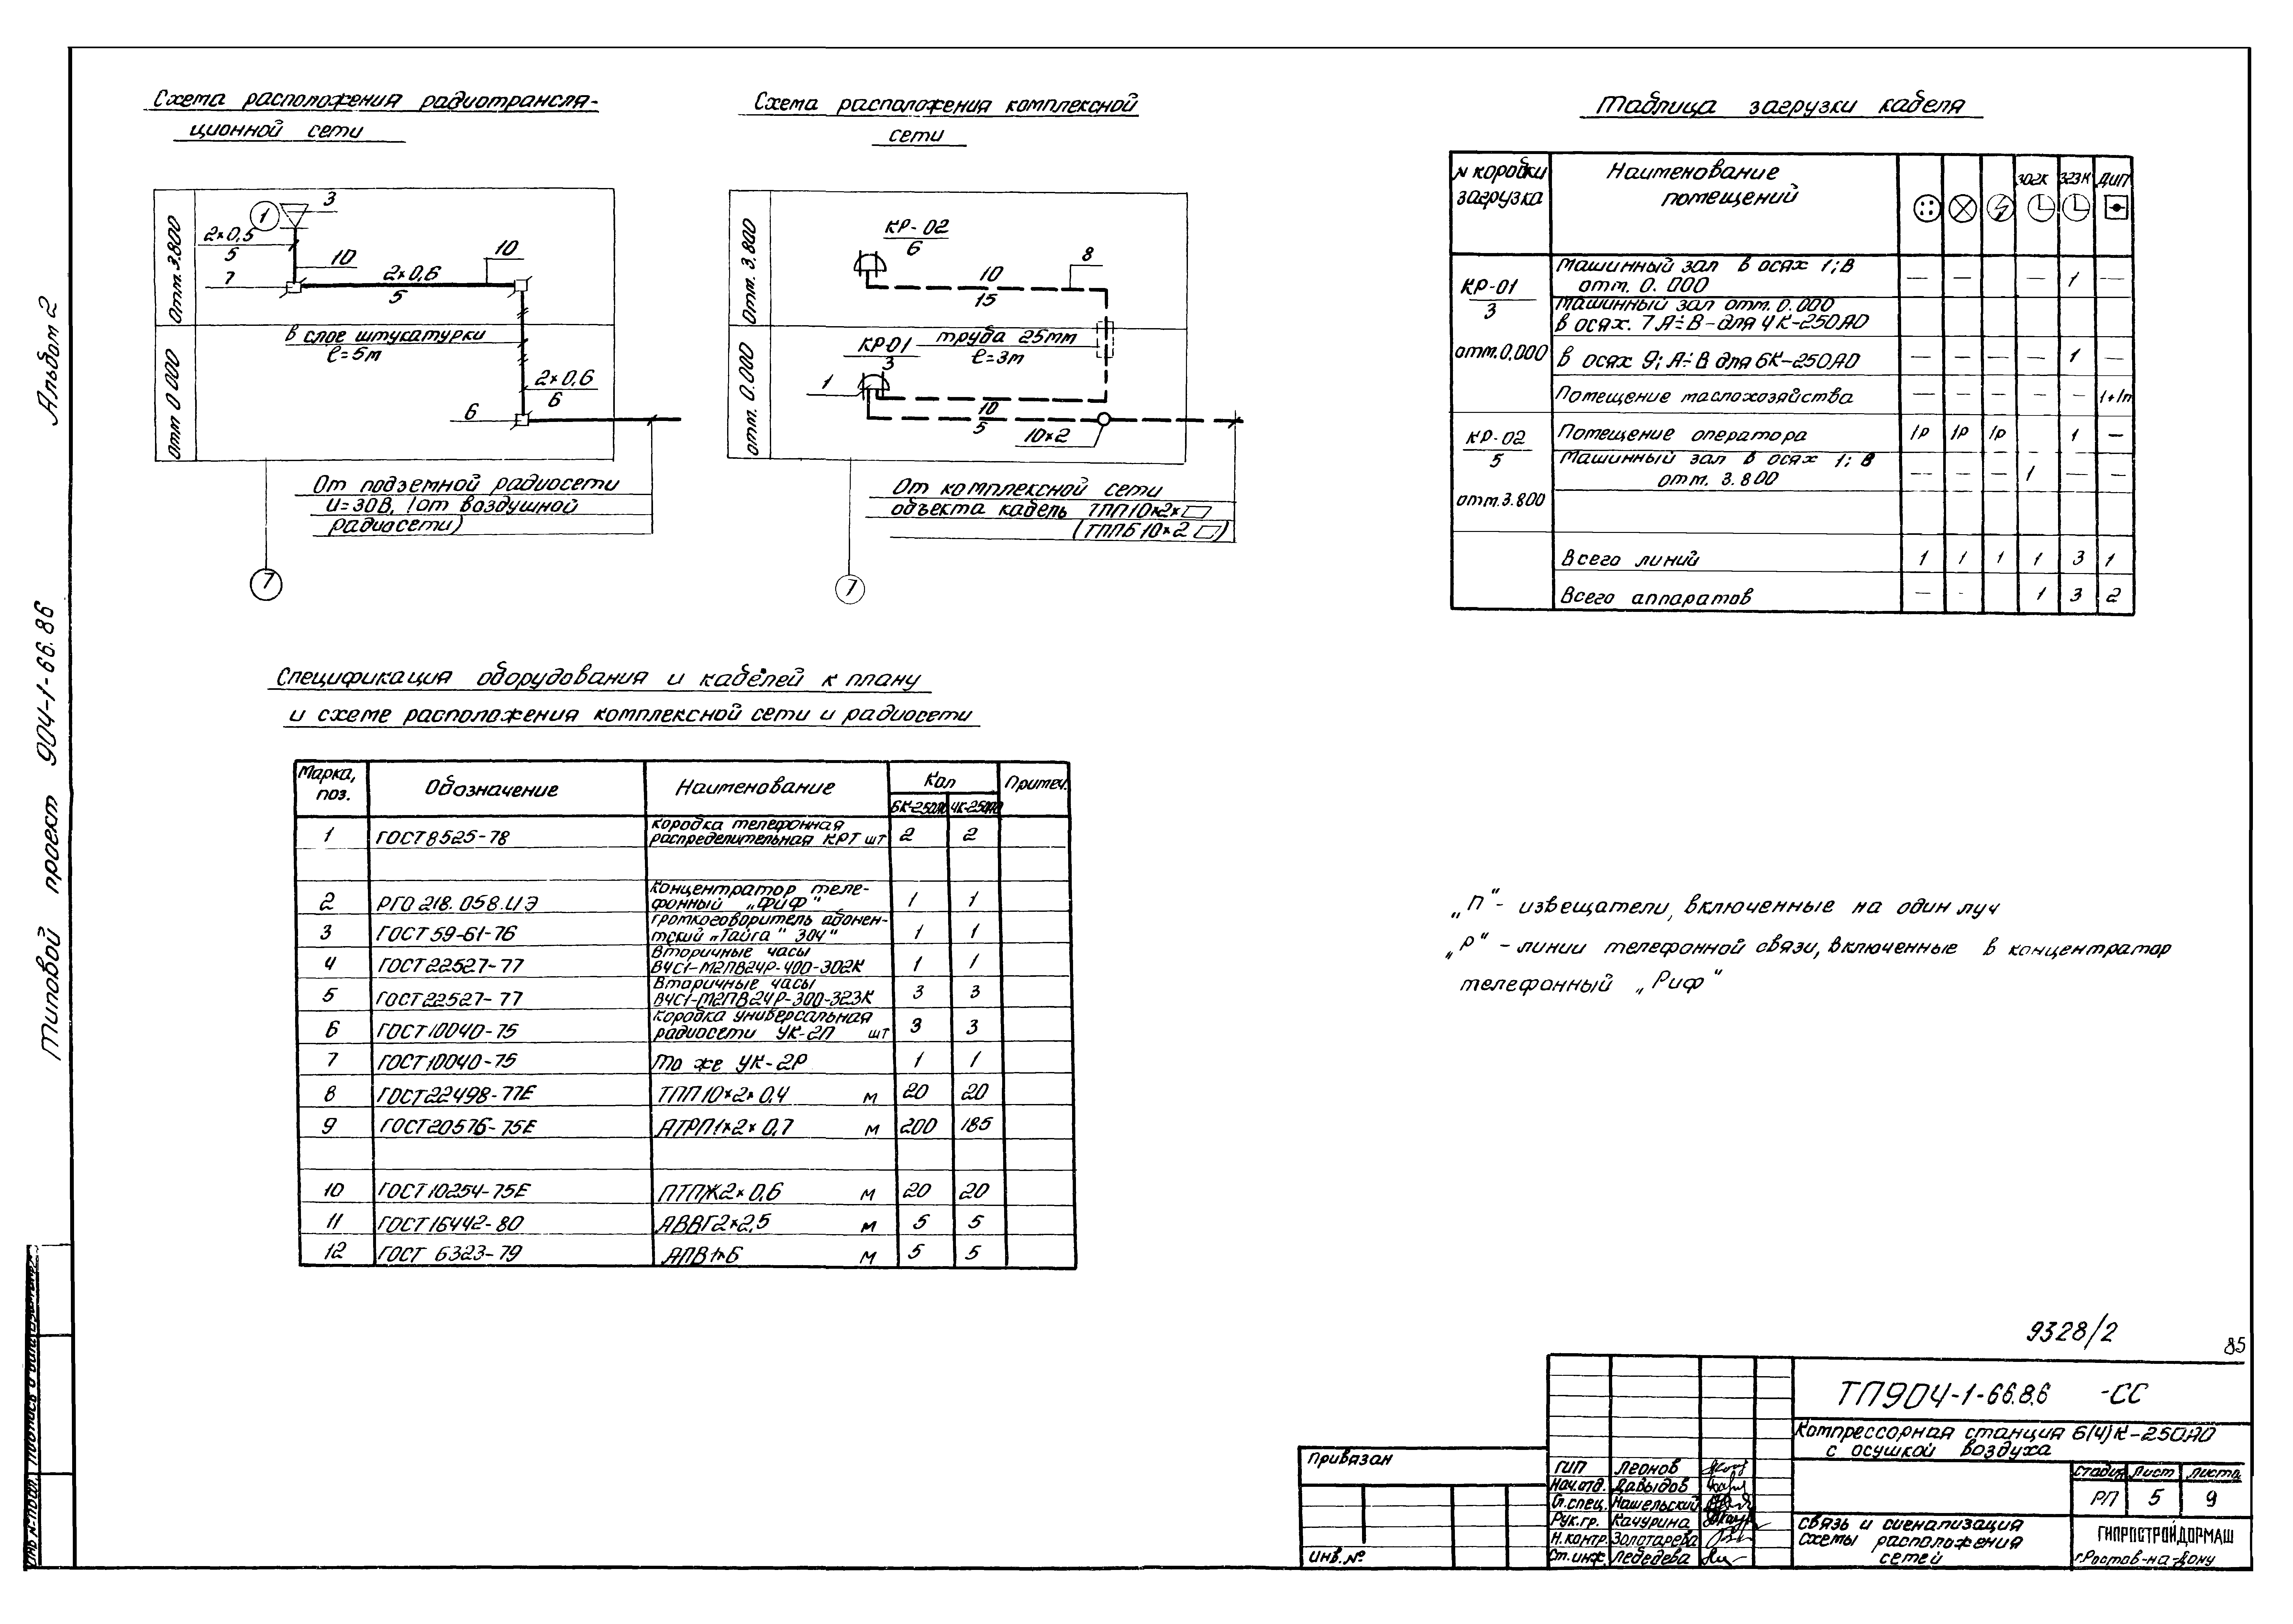 Альбом 2
Типовой проект 904-1-66.86
Схема расположения радиотрансля-
ционной сети
отм. 3.800
отм 0 000
1
3
2×0,5
5
10
7
2×0,6
5
10
в слое штукатурки
ℓ=5м
2×0,6
6
6
От подземной радиосети
U=30В, (от воздушной
радиосети)
7
Схема расположения комплексной
сети
отм. 3.800
отм. 0.000
КР-02
6
10
15
8
КР-01
3
труба 25мм
ℓ=3м
1
10
5
10×2
От комплексной сети
объекта кабель ТПП10×2×▭
(ТППБ10×2 ▭)
7
Таблица загрузки кабеля
N коробки
загрузка
Наименование
помещений
302К 323К ДИП
КР-01
3
отм.0.000
Машинный зал в осях 1;В
отм. 0.000
— — — 1 —
Машинный зал отм. 0.000
в осях. 7 А÷В-для 4К-250АО
в осях 9; А÷В для 6К-250АО
— — — — 1 —
Помещение маслохозяйства
— — — — — 1+1п
КР-02
5
отм.3.800
Помещение оператора
1р 1р 1р 1 —
Машинный зал в осях 1; В
отм. 3.800
— — — 1 — —
Всего линий 1 1 1 1 3 1
Всего аппаратов — - 1 3 2
Спецификация оборудования и кабелей к плану
и схеме расположения комплексной сети и радиосети
Марка, поз. Обозначение Наименование Кол Примеч.
6К-250АО 4К-250АО
1 ГОСТ8525-78 коробка телефонная
распределительная КРТ шт 2 2
2 РГО 218.058.ИЭ концентратор теле-
фонный „Фиф" 1 1
3 ГОСТ 59-61-76 громкоговоритель абонен-
тский „Тайга" 304" 1 1
4 ГОСТ22527-77 Вторичные часы
ВЧС1-М2ПВ24Р-400-302К 1 1
5 ГОСТ22527-77 Вторичные часы
ВЧС1-М2ПВ24Р-300-323К 3 3
6 ГОСТ10040-75 Коробка универсальная
радиосети УК-2П шт 3 3
7 ГОСТ10040-75 То же УК-2Р 1 1
8 ГОСТ22498-77Е ТПП10×2×0,4 м 20 20
9 ГОСТ20576-75Е АТРП1×2×0,7 м 200 185
10 ГОСТ10254-75Е ПТПЖ2×0,6 м 20 20
11 ГОСТ16442-80 АВВГ2×2,5 м 5 5
12 ГОСТ 6323-79 АПВ1×6 м 5 5
„п"- извещатели, включенные на один луч
„р" - линии телефонной связи, включенные в концентратор
телефонный „Риф"
9328/2
85
ТП904-1-66.86 -СС
Компрессорная станция 6(4)К-250АО
с осушкой воздуха
Стадия Лист Листа
РП 5 9
Связь и сигнализация
схемы расположения
сетей
ГИПРОСТРОЙДОРМАШ
г.Ростов-на-Дону
Привязан
Инв. №
ГИП Леонов
Нач.отд. Давыдов
Гл.спец. Нашельский
Рук.гр. Качурина
Н.контр. Золотарева
Ст.инж. Лебедева
Инв N-подл. Подпись и дата